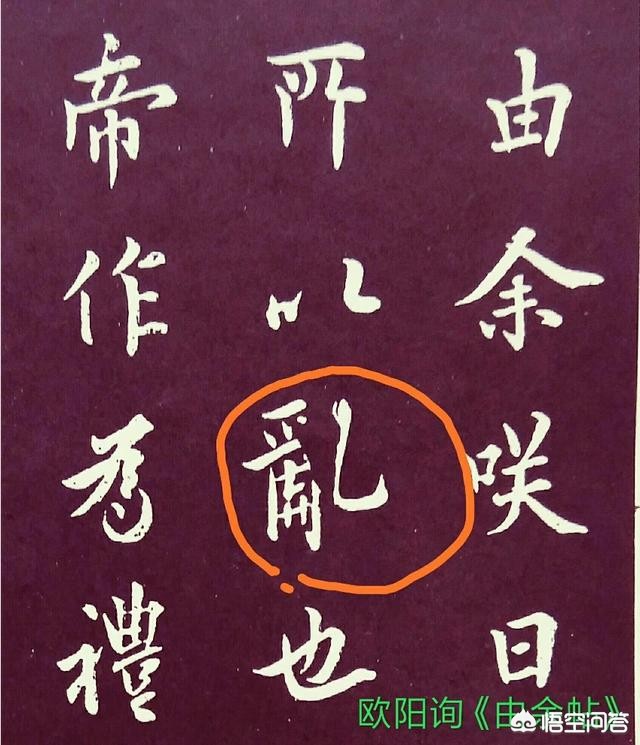 由余咲曰
所以亂也
帝作為禮
欧阳询《由余帖》
悟空问答